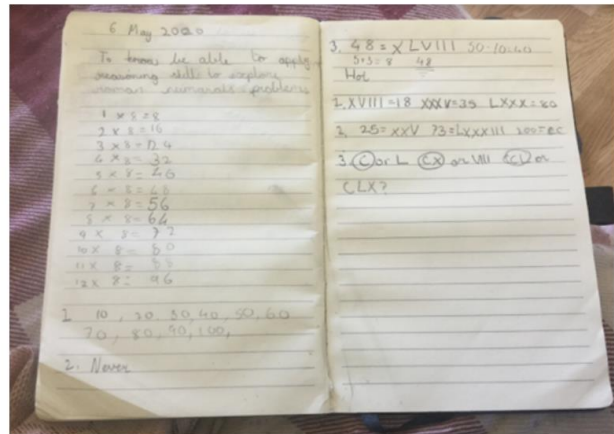 6 May 2020
To know be able to apply
reasoning skill to explore
roman numarals problems
1 × 8 = 8
2 × 8 = 16
3 × 8 = 24
4 × 8 = 32
5 × 8 = 40
6 × 8 = 48
7 × 8 = 56
8 × 8 = 64
9 × 8 = 72
10 × 8 = 80
11 × 8 = 88
12 × 8 = 96
1. 10, 20, 30, 40, 50, 60
70, 80, 90, 100,
2. Never
3, 48 = XLVIII 50-10=40
5+3=8 48
Hot
1. XVIII=18 XXXV=35 LXXX=80
2, 25= XXV 73=LXXXIII
3. C or L CX or VIII CCL or
CLX?